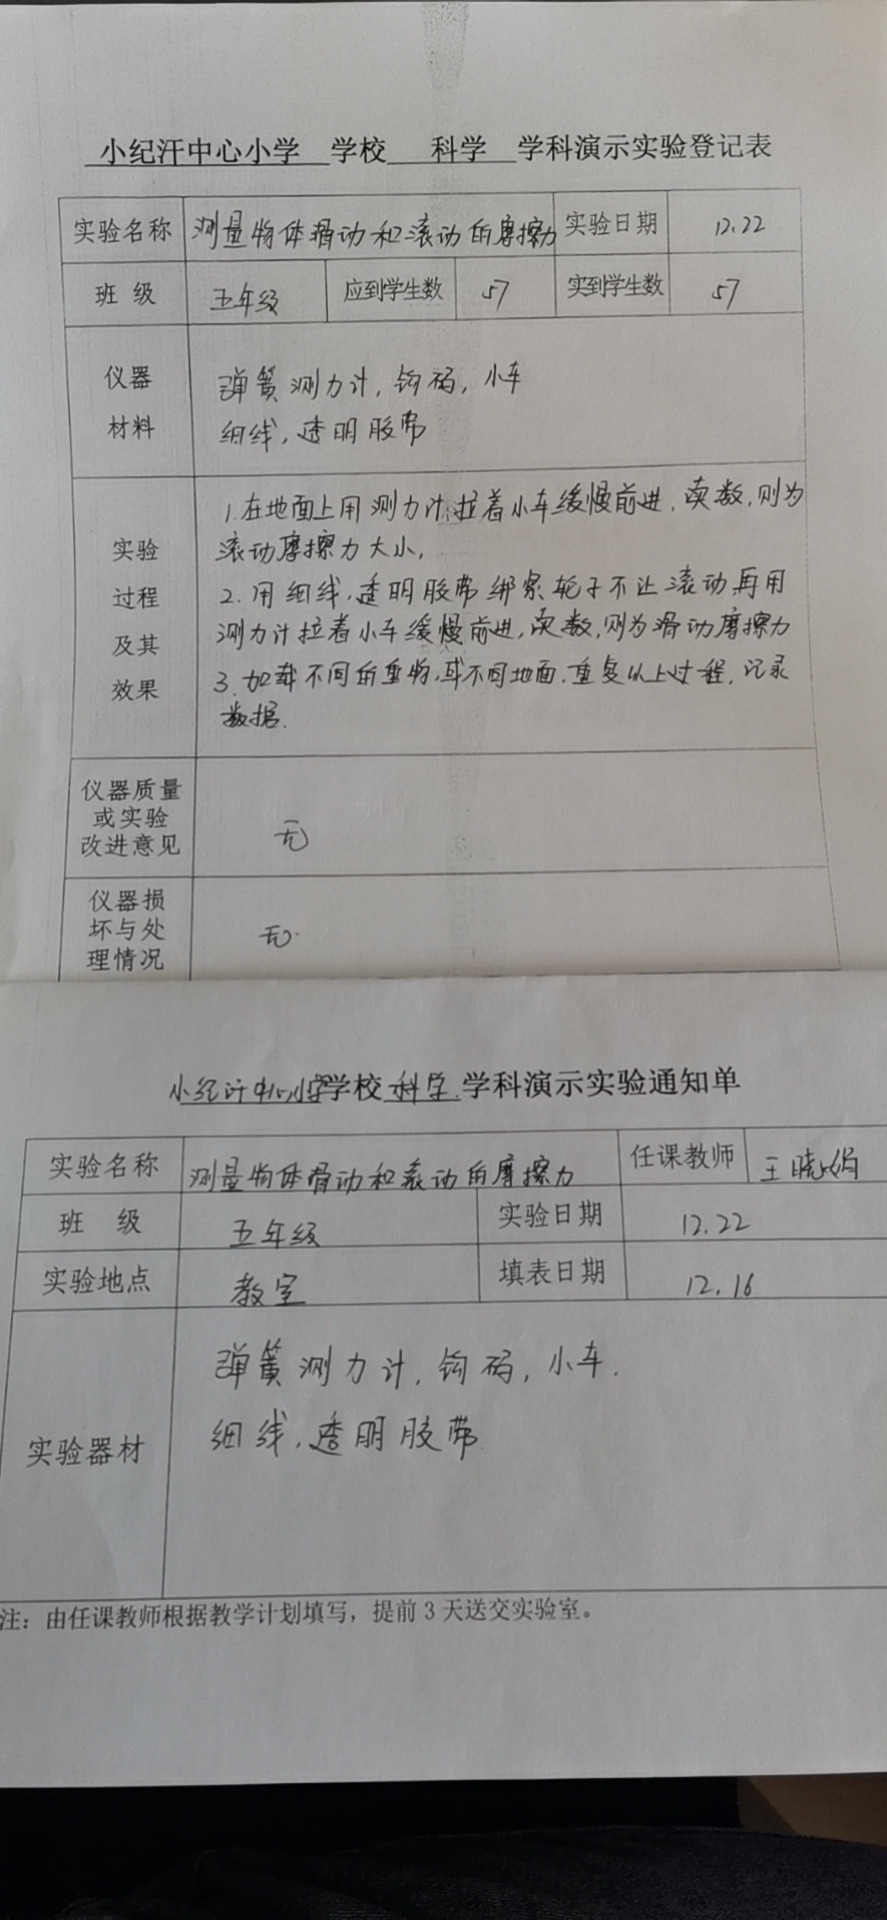 小纪汗中心小学 学校 科学 学科演示实验登记表
实验名称 测量物体滑动和滚动的摩擦力 实验日期 12.22
班 级 五年级 应到学生数 57 实到学生数 57
仪器
材料
弹簧测力计,钩码,小车
细线,透明胶带
实验
过程
及其
效果
1.在地面上用测力计拉着小车缓慢前进,读数,则为
滚动摩擦力大小,
2.用细线,透明胶带绑紧轮子不让滚动再用
测力计拉着小车缓慢前进,读数,则为滑动摩擦力
3.加载不同的重物,或不同地面,重复以上过程,记录
数据.
仪器质量
或实验
改进意见
无
仪器损
坏与处
理情况
无.
小纪汗中心小学学校科学.学科演示实验通知单
实验名称 测量物体滑动和滚动的摩擦力 任课教师 王晓娟
班 级 五年级 实验日期 12.22
实验地点 教室 填表日期 12.16
实验器材
弹簧测力计,钩码,小车.
细线,透明胶带
注:由任课教师根据教学计划填写,提前3天送交实验室。